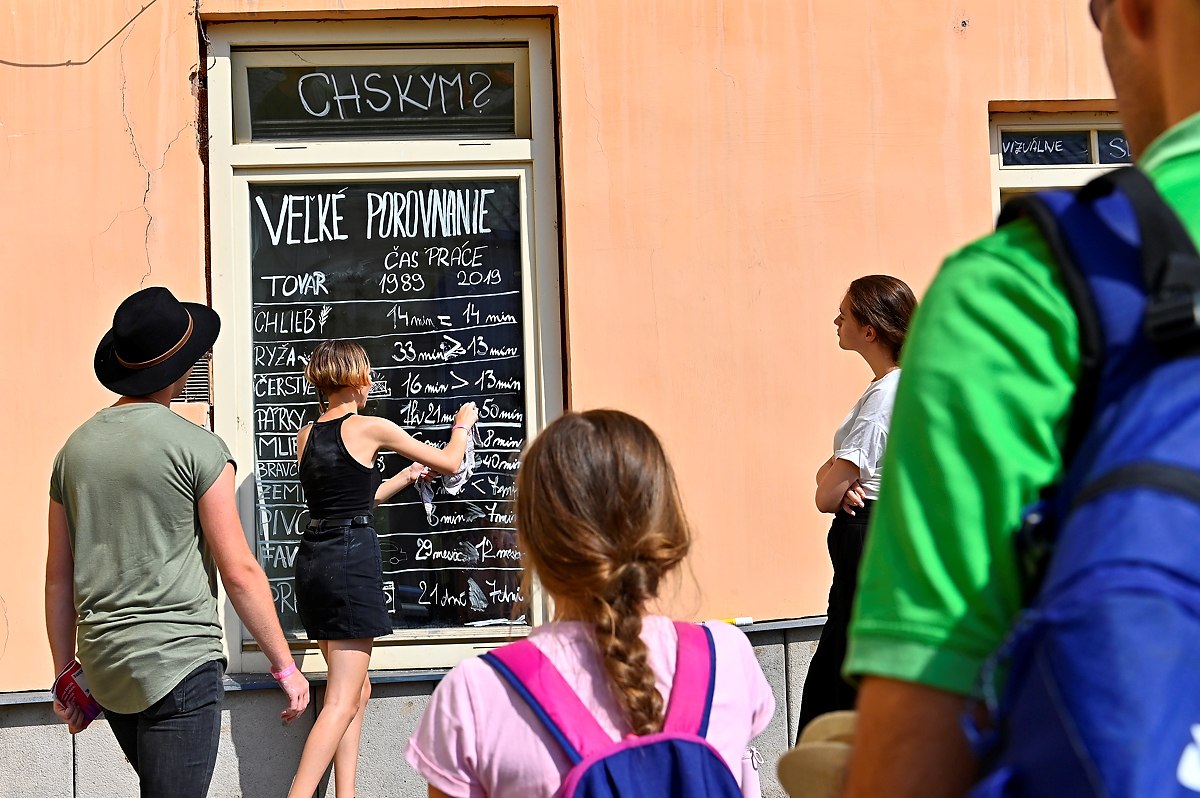 CHSKYM?
VEĽKÉ POROVNANIE
ČAS PRÁCE
TOVAR 1989 2019
CHLIEB 14 min = 14 min
RYŽA 33 min > 13 min
ČERSTVÉ 16 min > 13 min
PÁRKY 1h 21 min 50 min
MLIE 8 min
BRAVČ 40 min
ZEMI < 7 min
PIVO min 7 min
FAV 29 mesiac 12 mesia
PRI 21 dní 7 dní
VIZUÁLNE